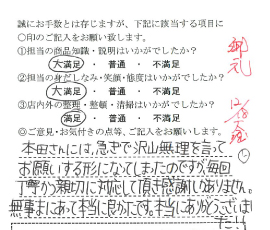 誠にお手数とは存じますが、下記に該当する項目に
○印のご記入をお願い致します。
①担当の商品知識・説明はいかがでしたか？
大満足 ・ 普通 ・ 不満足
②担当の身だしなみ・笑顔・態度はいかがでしたか？
大満足 ・ 普通 ・ 不満足
③店内外の整理・整頓・清掃はいかがでしたか？
満足 ・ 普通 ・ 不満足
◎ご意見・お気付きの点等、ご記入をお願いします。
本田さんには、急ぎで沢山無理を言って
お願いする形になってしまったのですが、毎回
丁寧かつ親切に対応して頂き感謝しかありません。
無事まにあって本当に良かったです。本当にありがとうございま
した!!